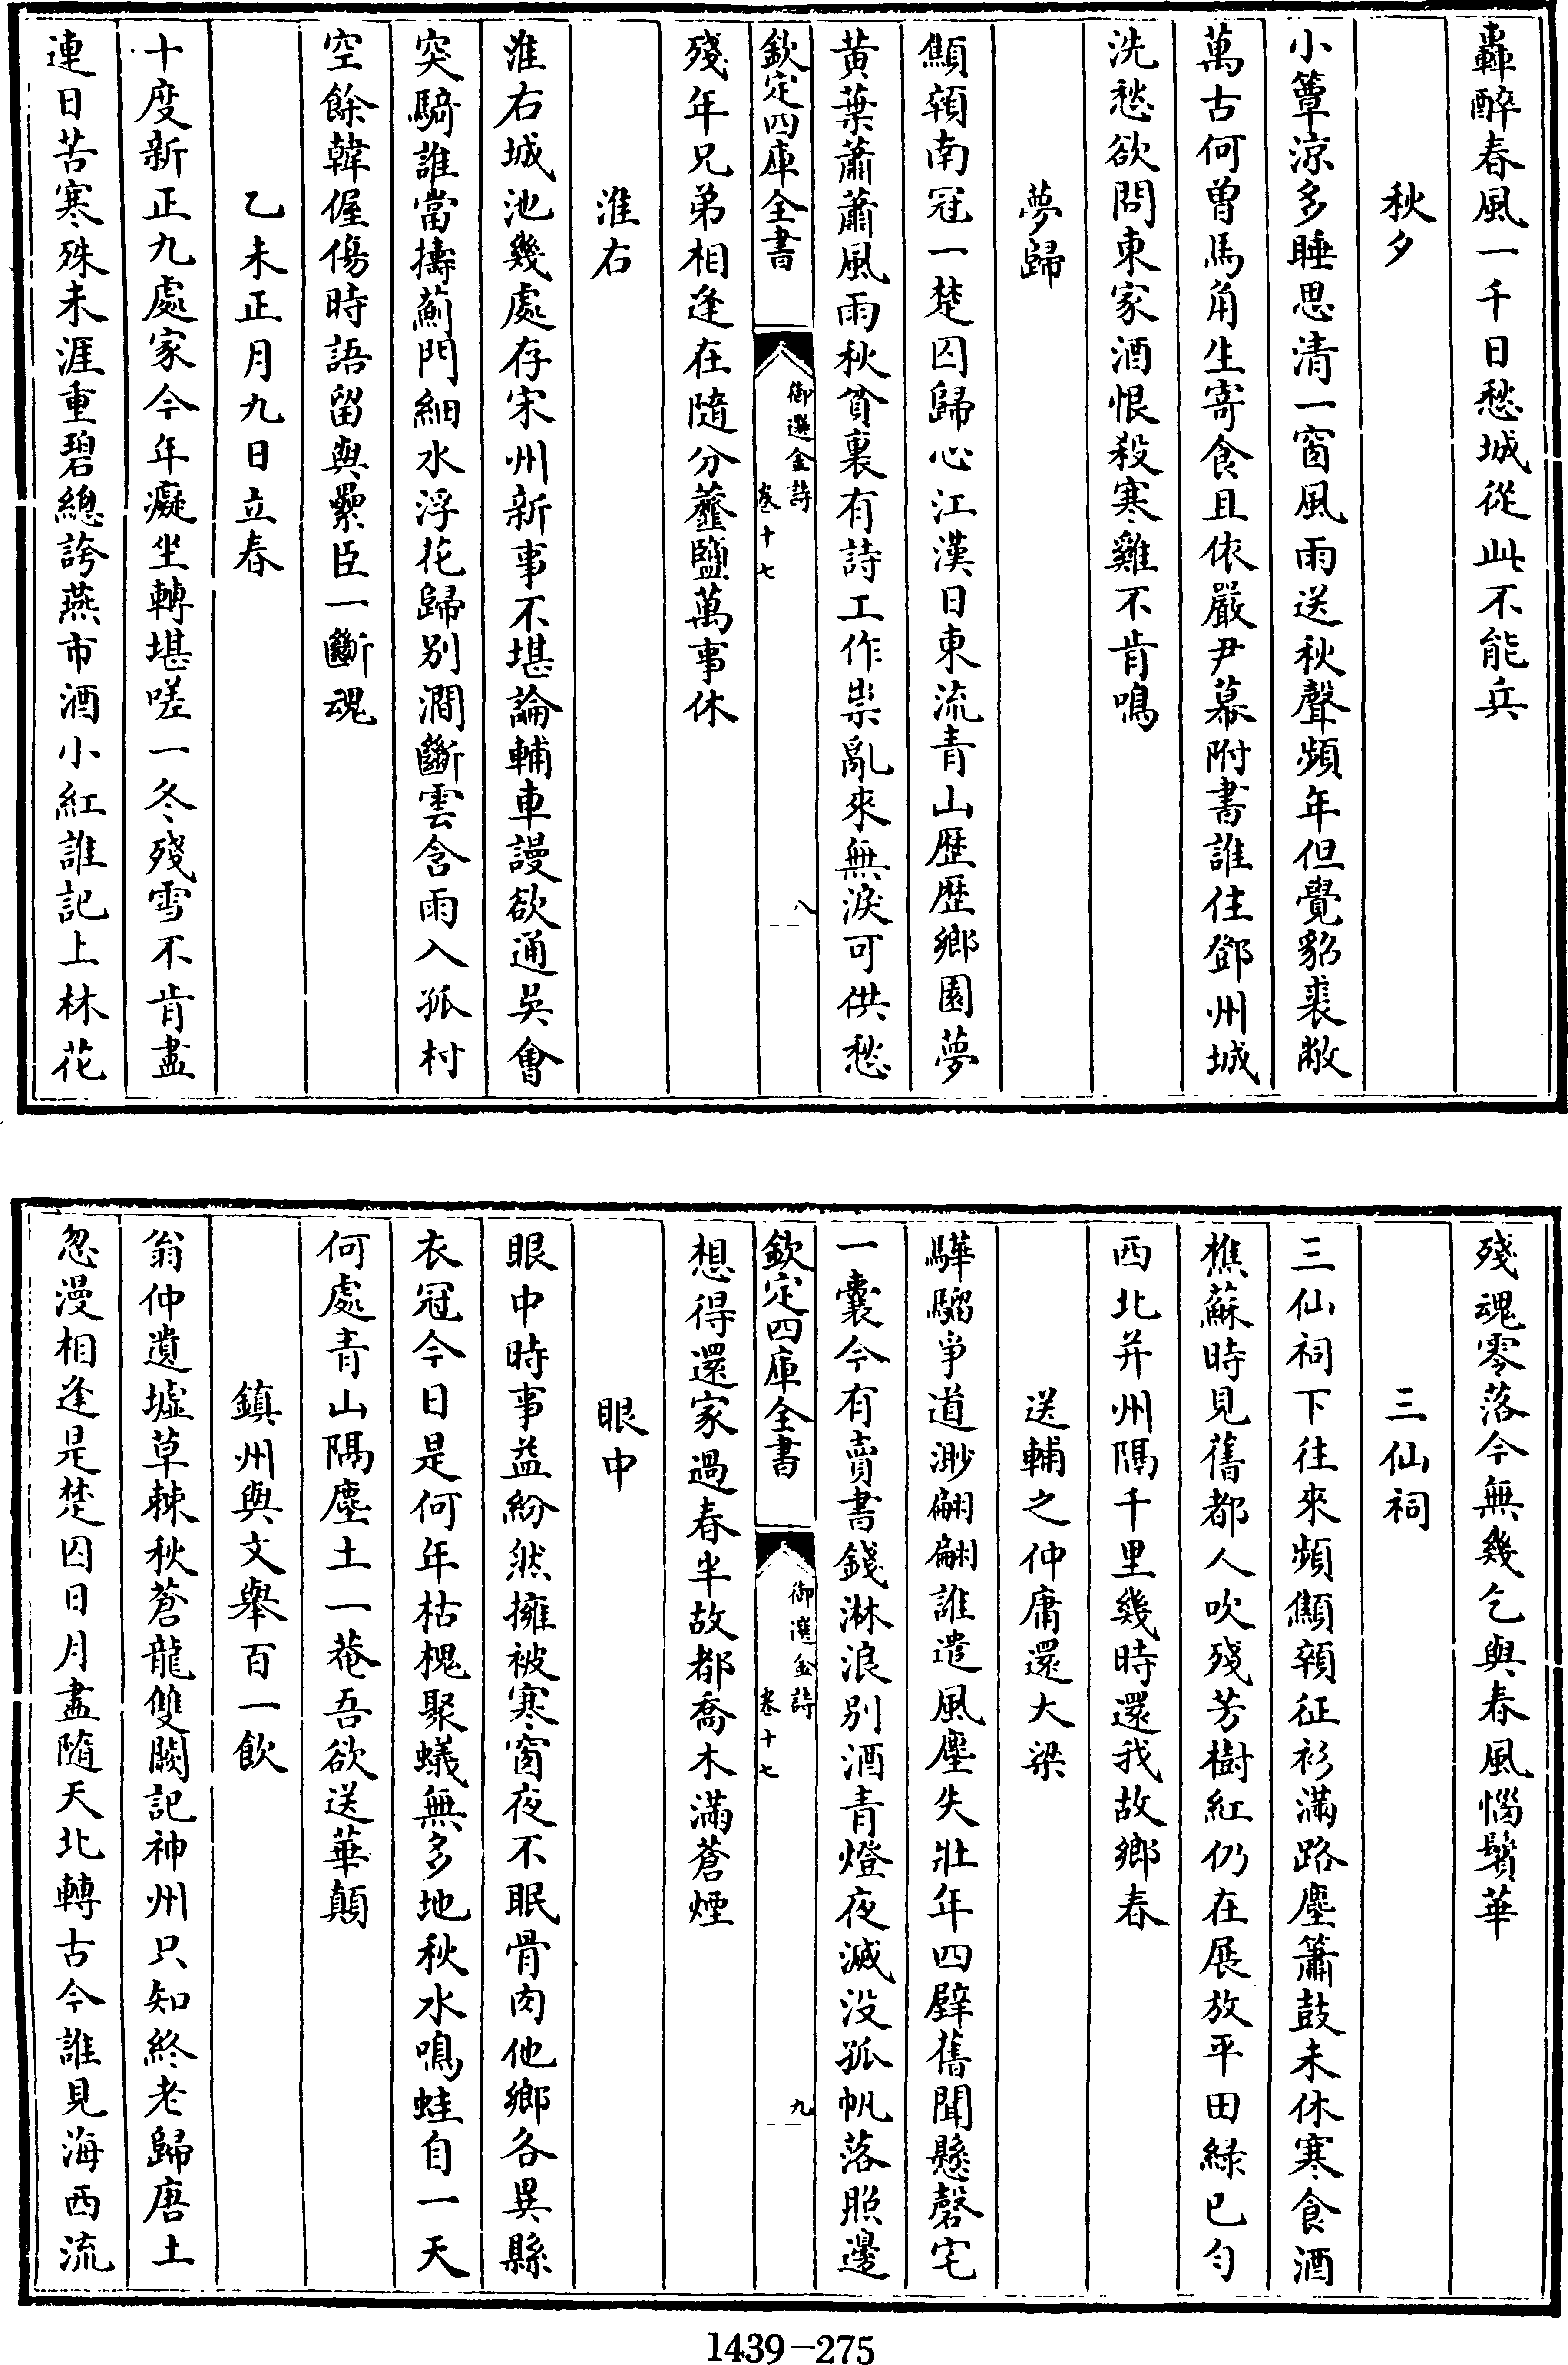 轟醉春風一千日愁城從此不能兵
秋夕
小簟涼多睡思清一窗風雨送秋聲頻年但覺貂裘敝
萬古何曾馬角生寄食且依嚴尹幕附書誰住鄧州城
洗愁欲問東家酒恨殺寒雞不肯鳴
夢歸
顦顇南冠一楚囚歸心江漢日東流青山歷歷鄉園夢
黃葉蕭蕭風雨秋貧裏有詩工作祟亂來無淚可供愁
欽定四庫全書
御選金詩
卷十七
八
殘年兄弟相逢在隨分虀鹽萬事休
淮右
淮右城池幾處存宋州新事不堪論輔車謾欲通吳會
突騎誰當擣薊門細水浮花歸別澗斷雲含雨入孤村
空餘韓偓傷時語留與纍臣一斷魂
乙未正月九日立春
十度新正九處家今年癡坐轉堪嗟一冬殘雪不肯盡
連日苦寒殊未涯重碧總誇燕市酒小紅誰記上林花
殘魂零落今無幾乞與春風惱鬢華
三仙祠
三仙祠下往來頻顦顇征衫滿路塵簫鼓未休寒食酒
樵蘇時見舊都人吹殘芳樹紅仍在展放平田綠已勻
西北并州隔千里幾時還我故鄉春
送輔之仲庸還大梁
驊騮爭道渺翩翩誰遣風塵失壯年四壁舊聞懸磬宅
一囊今有賣書錢淋浪別酒青燈夜滅沒孤帆落照邊
欽定四庫全書
御選金詩
卷十七
九
想得還家過春半故都喬木滿蒼煙
眼中
眼中時事益紛然擁被寒窗夜不眠骨肉他鄉各異縣
衣冠今日是何年枯槐聚蟻無多地秋水鳴蛙自一天
何處青山隔塵土一菴吾欲送華顛
鎮州與文舉百一飲
翁仲遺墟草棘秋蒼龍雙闕記神州只知終老歸唐土
忽漫相逢是楚囚日月盡隨天北轉古今誰見海西流
1439-275